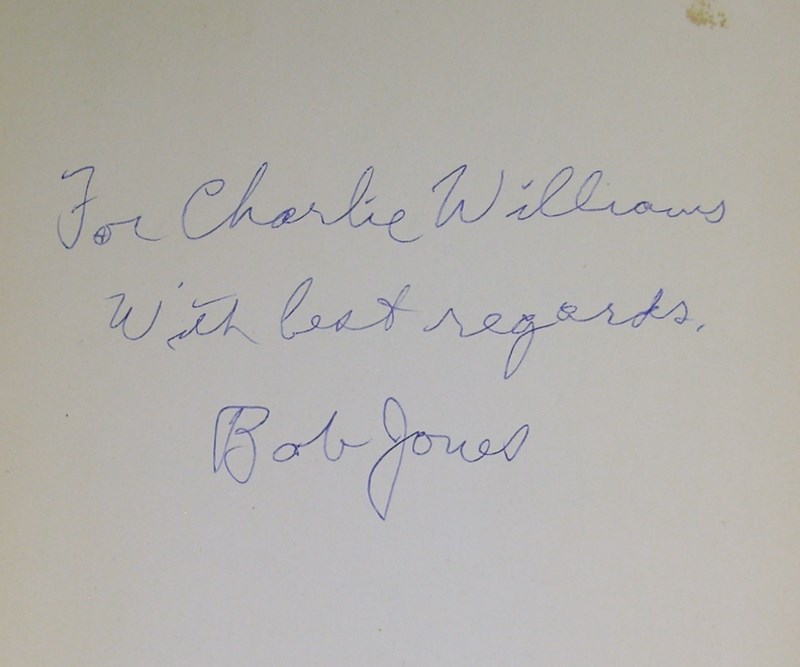 For Charlie Williams
With best regards,
Bob Jones